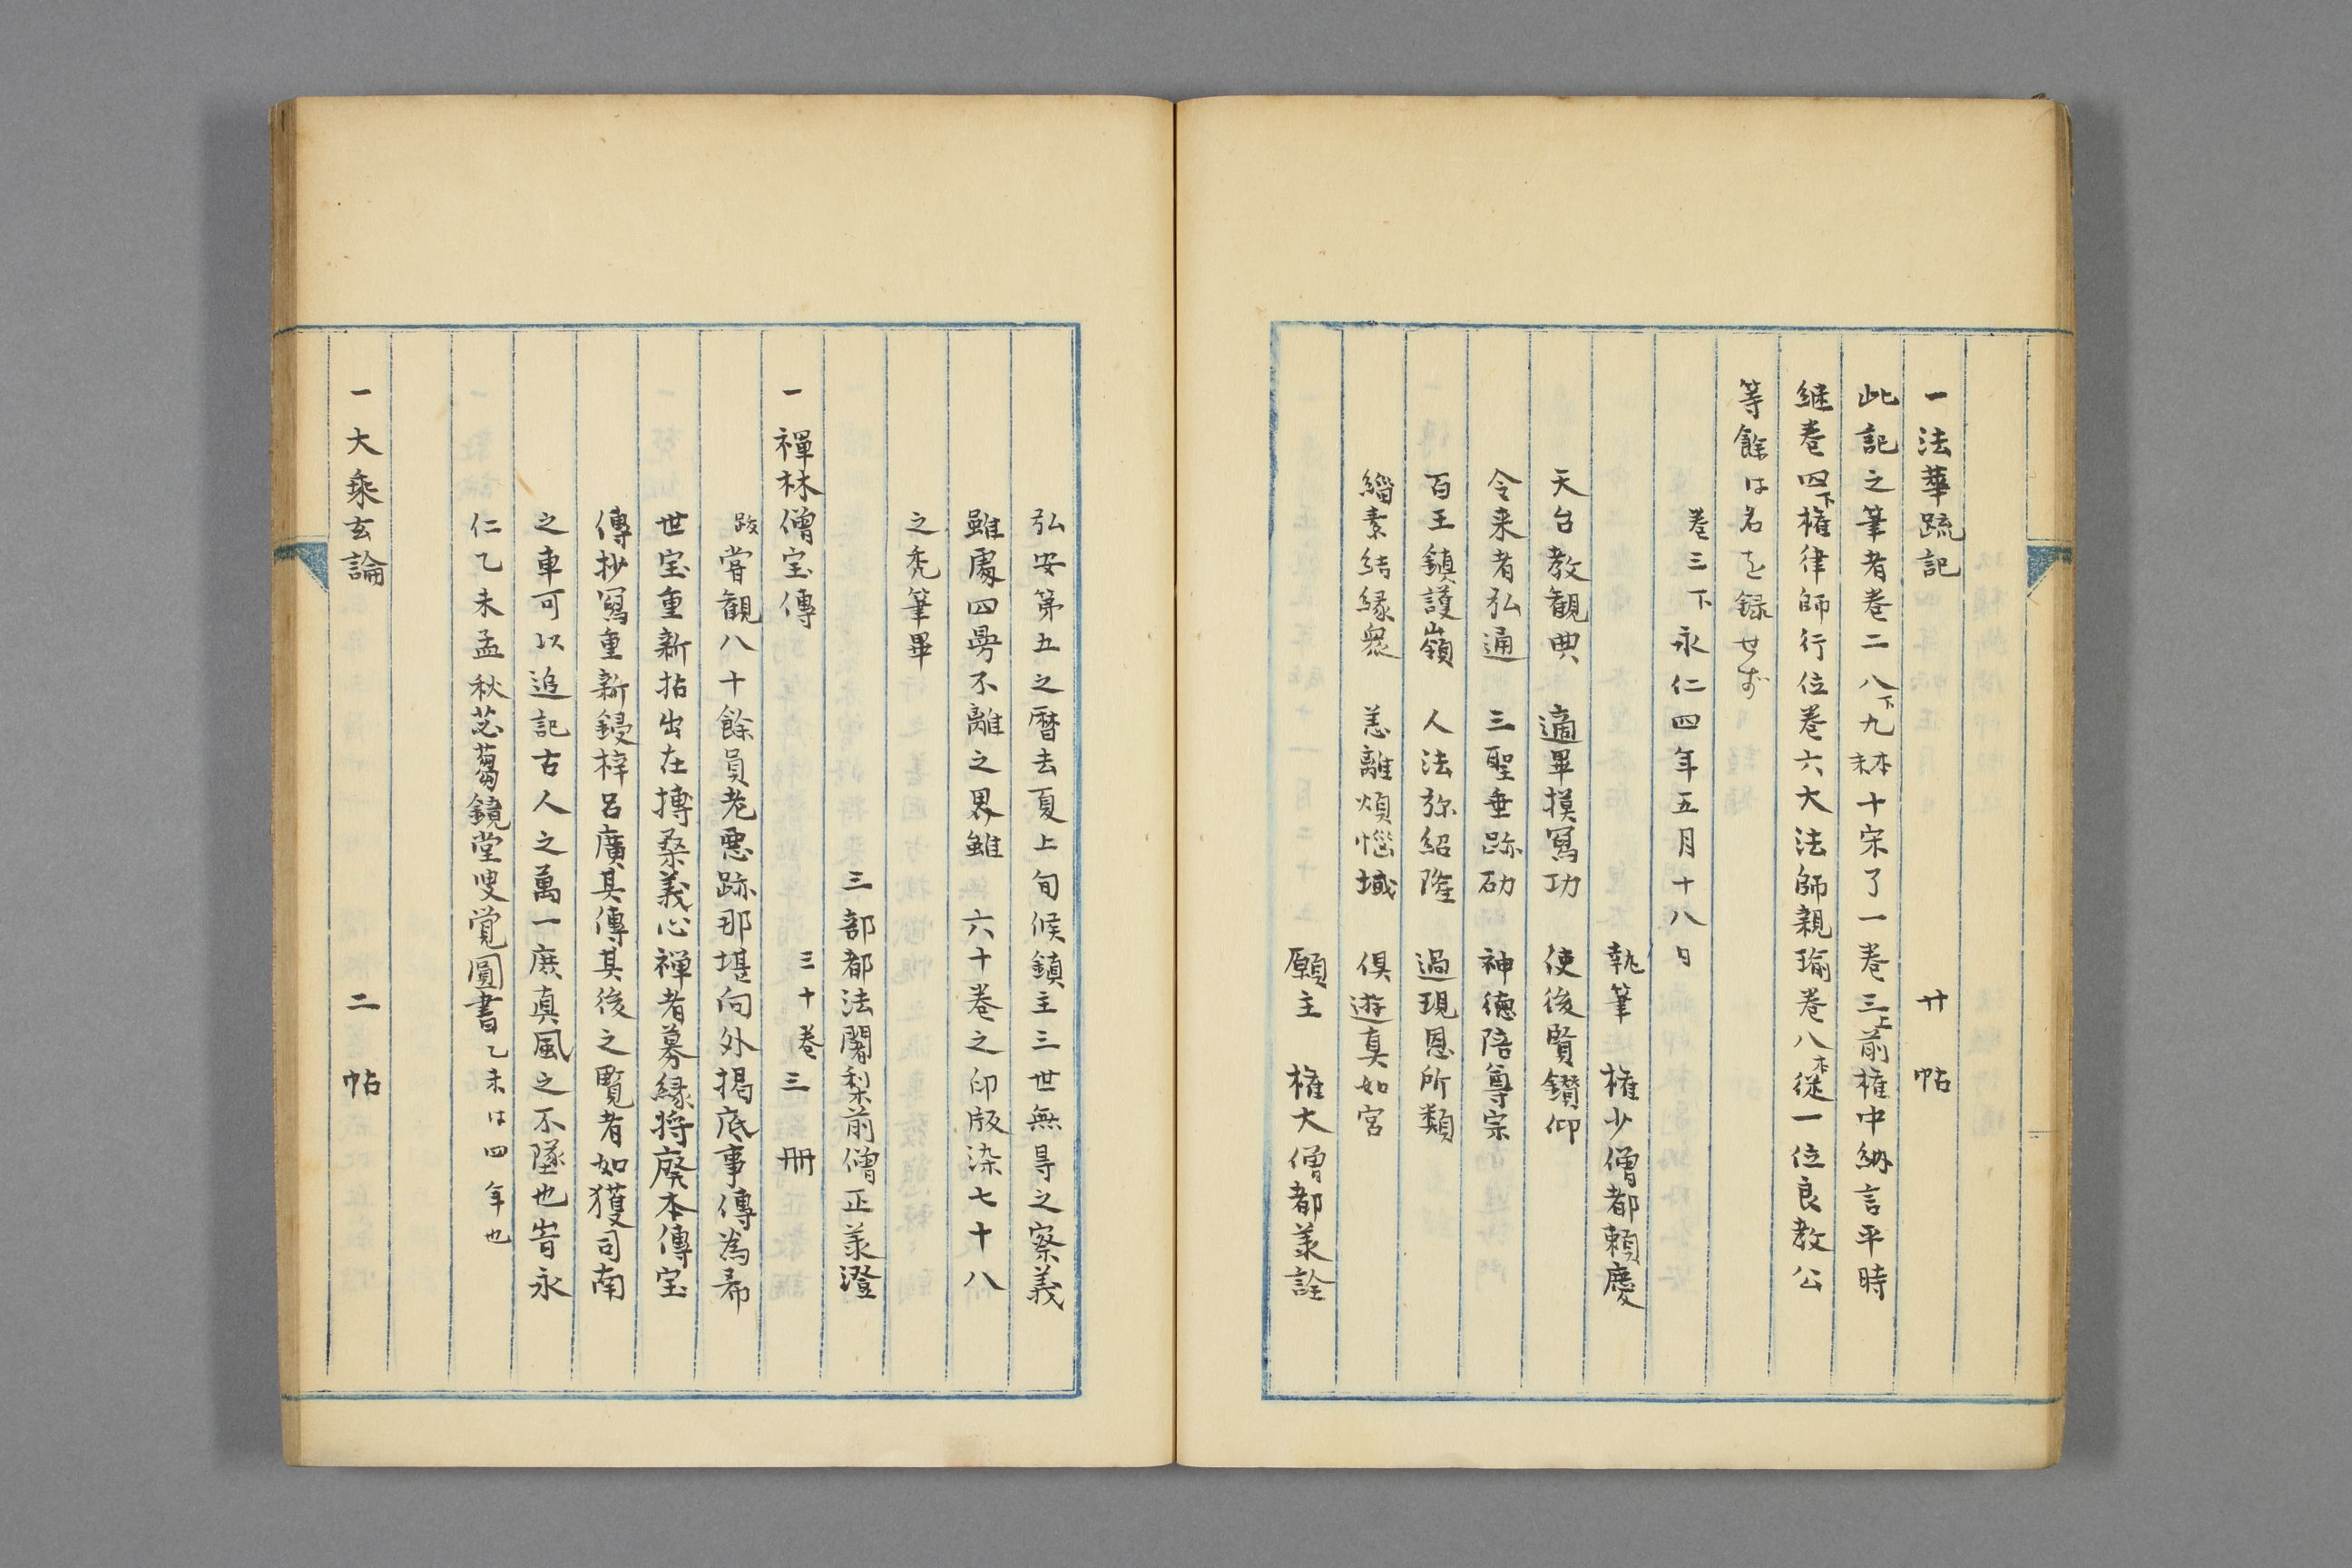 一法華疏記　廿帖
此記之筆者巻二八下九本末十宋了一巻三上前権中納言平時
継巻四下権律師行位巻六大法師親瑜巻八本従一位良教公
等餘は名を録せず
巻三下永仁四年五月十八日
執筆　権少僧都頼慶
天台教観典　適畢摸寫功　使後賢鑚仰
令来者弘通　三聖垂跡砌　神徳陪尊宗
百王鎮護嶺　人法弥紹隆　過現恩所類
緇素結縁衆　恙離煩惱域　倶遊真如宮
願主　権大僧都羕詮
弘安第五之暦去夏上旬候鎮主三世無㝵之寮義
雖處四㝵不離之界雖　六十巻之印版染七十八
之禿筆畢
三部都法闍梨前僧正羕澄
一禪林僧宝傳　三十巻三冊
跋　甞観八十餘員老悪跡那堪向外揭底事傳為希
世宝重新拈出在摶桑義心禅者募縁將廃本傳宝
傳抄寫重新鋟梓呂廣其傳其後之覧者如獲司南
之車可以追記古人之萬一庶真風之不墜也旹永
仁乙未孟秋苾蒭鏡堂叟覚圓書乙未は四年也
一大乗玄論　二帖